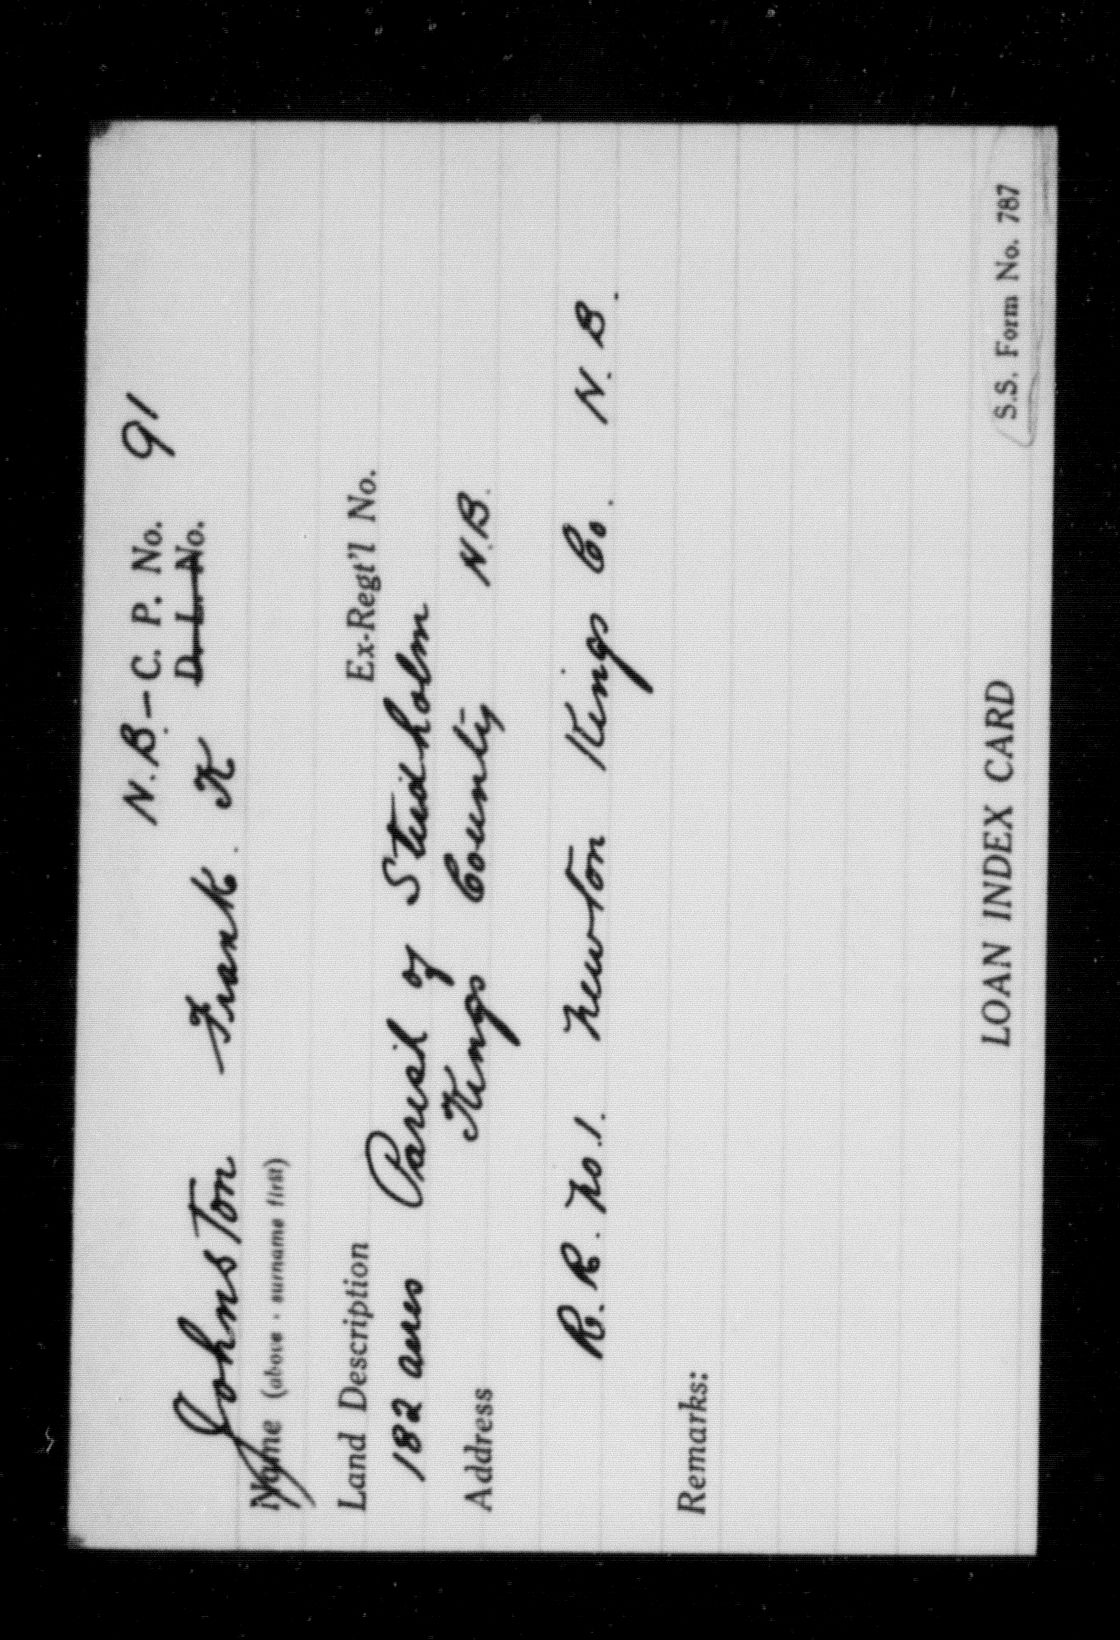 N.B - C. P. No. 91
Johnston Frank. K D. L. No.
Name (above - surname first)
Land Description Ex-Regt'l No.
182 acres Parish of Studholm
Kings County N.B.
Address
R. R. No. 1. Newton Kings Co. N. B.
Remarks:
LOAN INDEX CARD S.S. Form No. 787